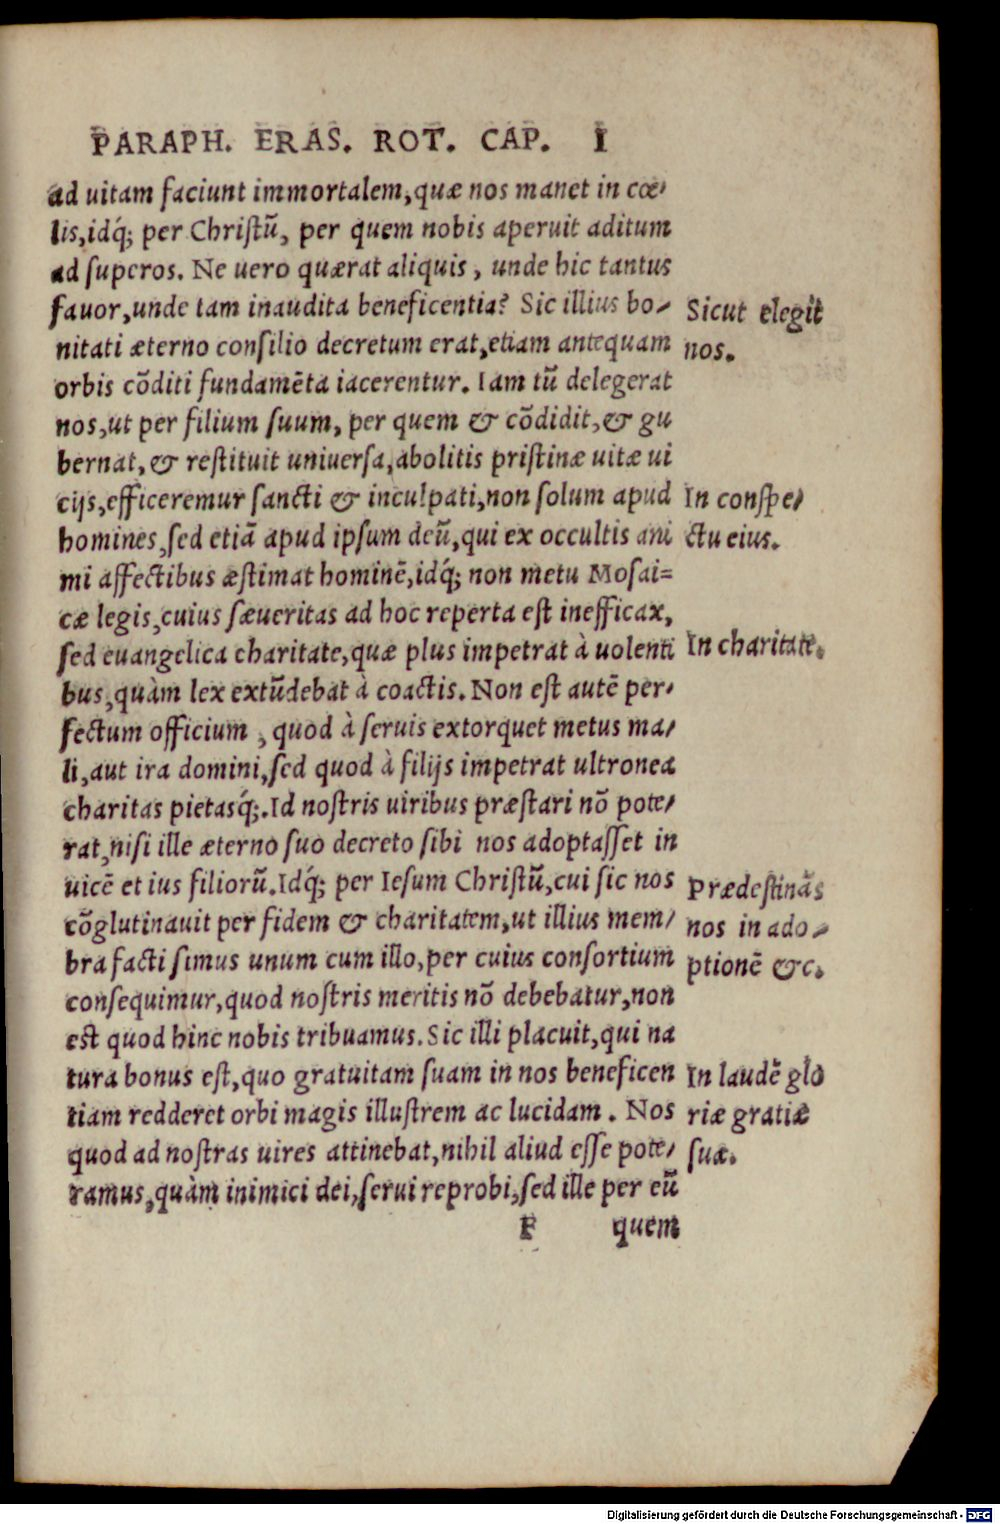 PARAPH. ERAS. ROT. CAP. I
ad uitam faciunt immortalem, quæ nos manet in cœ-
lis, idq́; per Christũ, per quem nobis aperuit aditum
ad superos. Ne uero quærat aliquis, unde hic tantus
fauor, unde tam inaudita beneficentia? Sic illius bo-
nitati æterno consilio decretum erat, etiam antequam
orbis cõditi fundamẽta iacerentur. Iam tũ delegerat
nos, ut per filium suum, per quem & cõdidit, & gu
bernat, & restituit uniuersa, abolitis pristinæ uitæ ui
cijs, efficeremur sancti & inculpati, non solum apud
homines, sed etiã apud ipsum deũ, qui ex occultis ani
mi affectibus æstimat hominẽ, idq́; non metu Mosai=
cæ legis, cuius sæueritas ad hoc reperta est inefficax,
sed euangelica charitate, quæ plus impetrat à uolenti
bus, quàm lex extũdebat à coactis. Non est autẽ per-
fectum officium, quod à seruis extorquet metus ma-
li, aut ira domini, sed quod à filijs impetrat ultronea
charitas pietasq́;. Id nostris uiribus præstari nõ pote-
rat, nisi ille æterno suo decreto sibi nos adoptasset in
uicẽ et ius filiorũ. Idq́; per Iesum Christũ, cui sic nos
cõglutinauit per fidem & charitatem, ut illius mem-
bra facti simus unum cum illo, per cuius consortium
consequimur, quod nostris meritis nõ debebatur, non
est quod hinc nobis tribuamus. Sic illi placuit, qui na
tura bonus est, quo gratuitam suam in nos beneficen
tiam redderet orbi magis illustrem ac lucidam. Nos
quod ad nostras uires attinebat, nihil aliud esse pote-
ramus, quàm inimici dei, serui reprobi, sed ille per eũ
F quem
Sicut elegit
nos.
In conspe-
ctu eius.
In charitate.
Prædestinãs
nos in ado-
ptionẽ &c.
In laudẽ glo
riæ gratiæ
suæ.
Digitalisierung gefördert durch die Deutsche Forschungsgemeinschaft - DFG